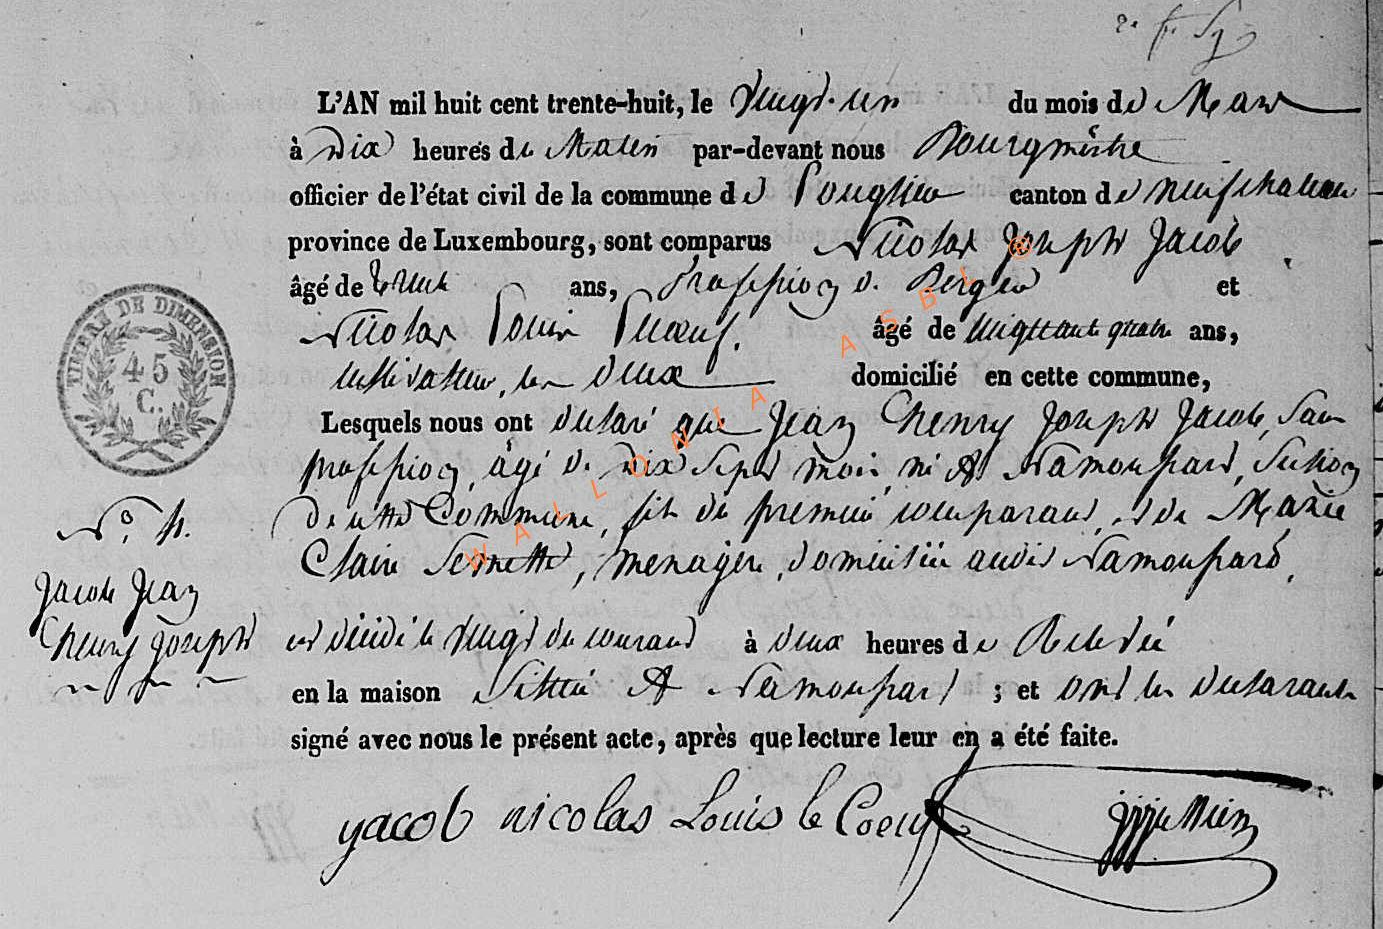 L'AN mil huit cent trente-huit, le vingt-un du mois de Mars
à Dix heures de Matin par-devant nous Bourgmêstre
officier de l'état civil de la commune de Longlier canton de neufchateau
province de Luxembourg, sont comparus Nicolas Joseph Jacob
âgé de trente ans, Proffession de Berger et
Nicolas Louis Lecoeuf. âgé de cinquante quatre ans,
cultivateur, les deux domicilié en cette commune,
Lesquels nous ont declaré que Jean Chenry Joseph Jacob, sans
proffession, âgé de dix sept mois, né A Namoussard, section
de cette Commune, fils du premier comparant, et de Marie
Claire Sernette, menagere, domiciliée audit Namoussard,
est décédé le vingt du courant à deux heures de Relevée
en la maison Sittuée A Namoussart ; et ont les declarants
signé avec nous le présent acte, après que lecture leur en a été faite.
yacob nicolas Louis le Coeuf
TIMBRE DE DIMENSION
45
C.
N.º 4.
Jacob Jean
Chenry Joseph
WALLONIA ASBL ®